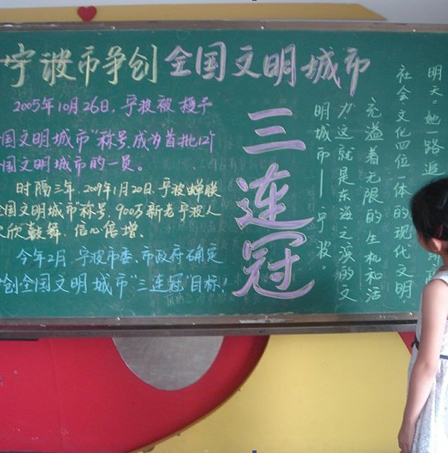 宁波市争创全国文明城市
2005年10月26日,宁波被授予
国文明城市"称号,成为首批12个
国文明城市的一员。
时隔三年,2009年1月20日,宁波蝉联
全国文明城市"称号,900万新老宁波人
欢欣鼓舞、信心倍增。
今年2月,宁波市委、市政府确定
创全国文明城市"三连冠"目标!
三连冠
明天。她一路迈
社会、文化四位一体的现代文明
充溢着无限的生机和活
力,这就是东海之滨的文
明城市——宁波。